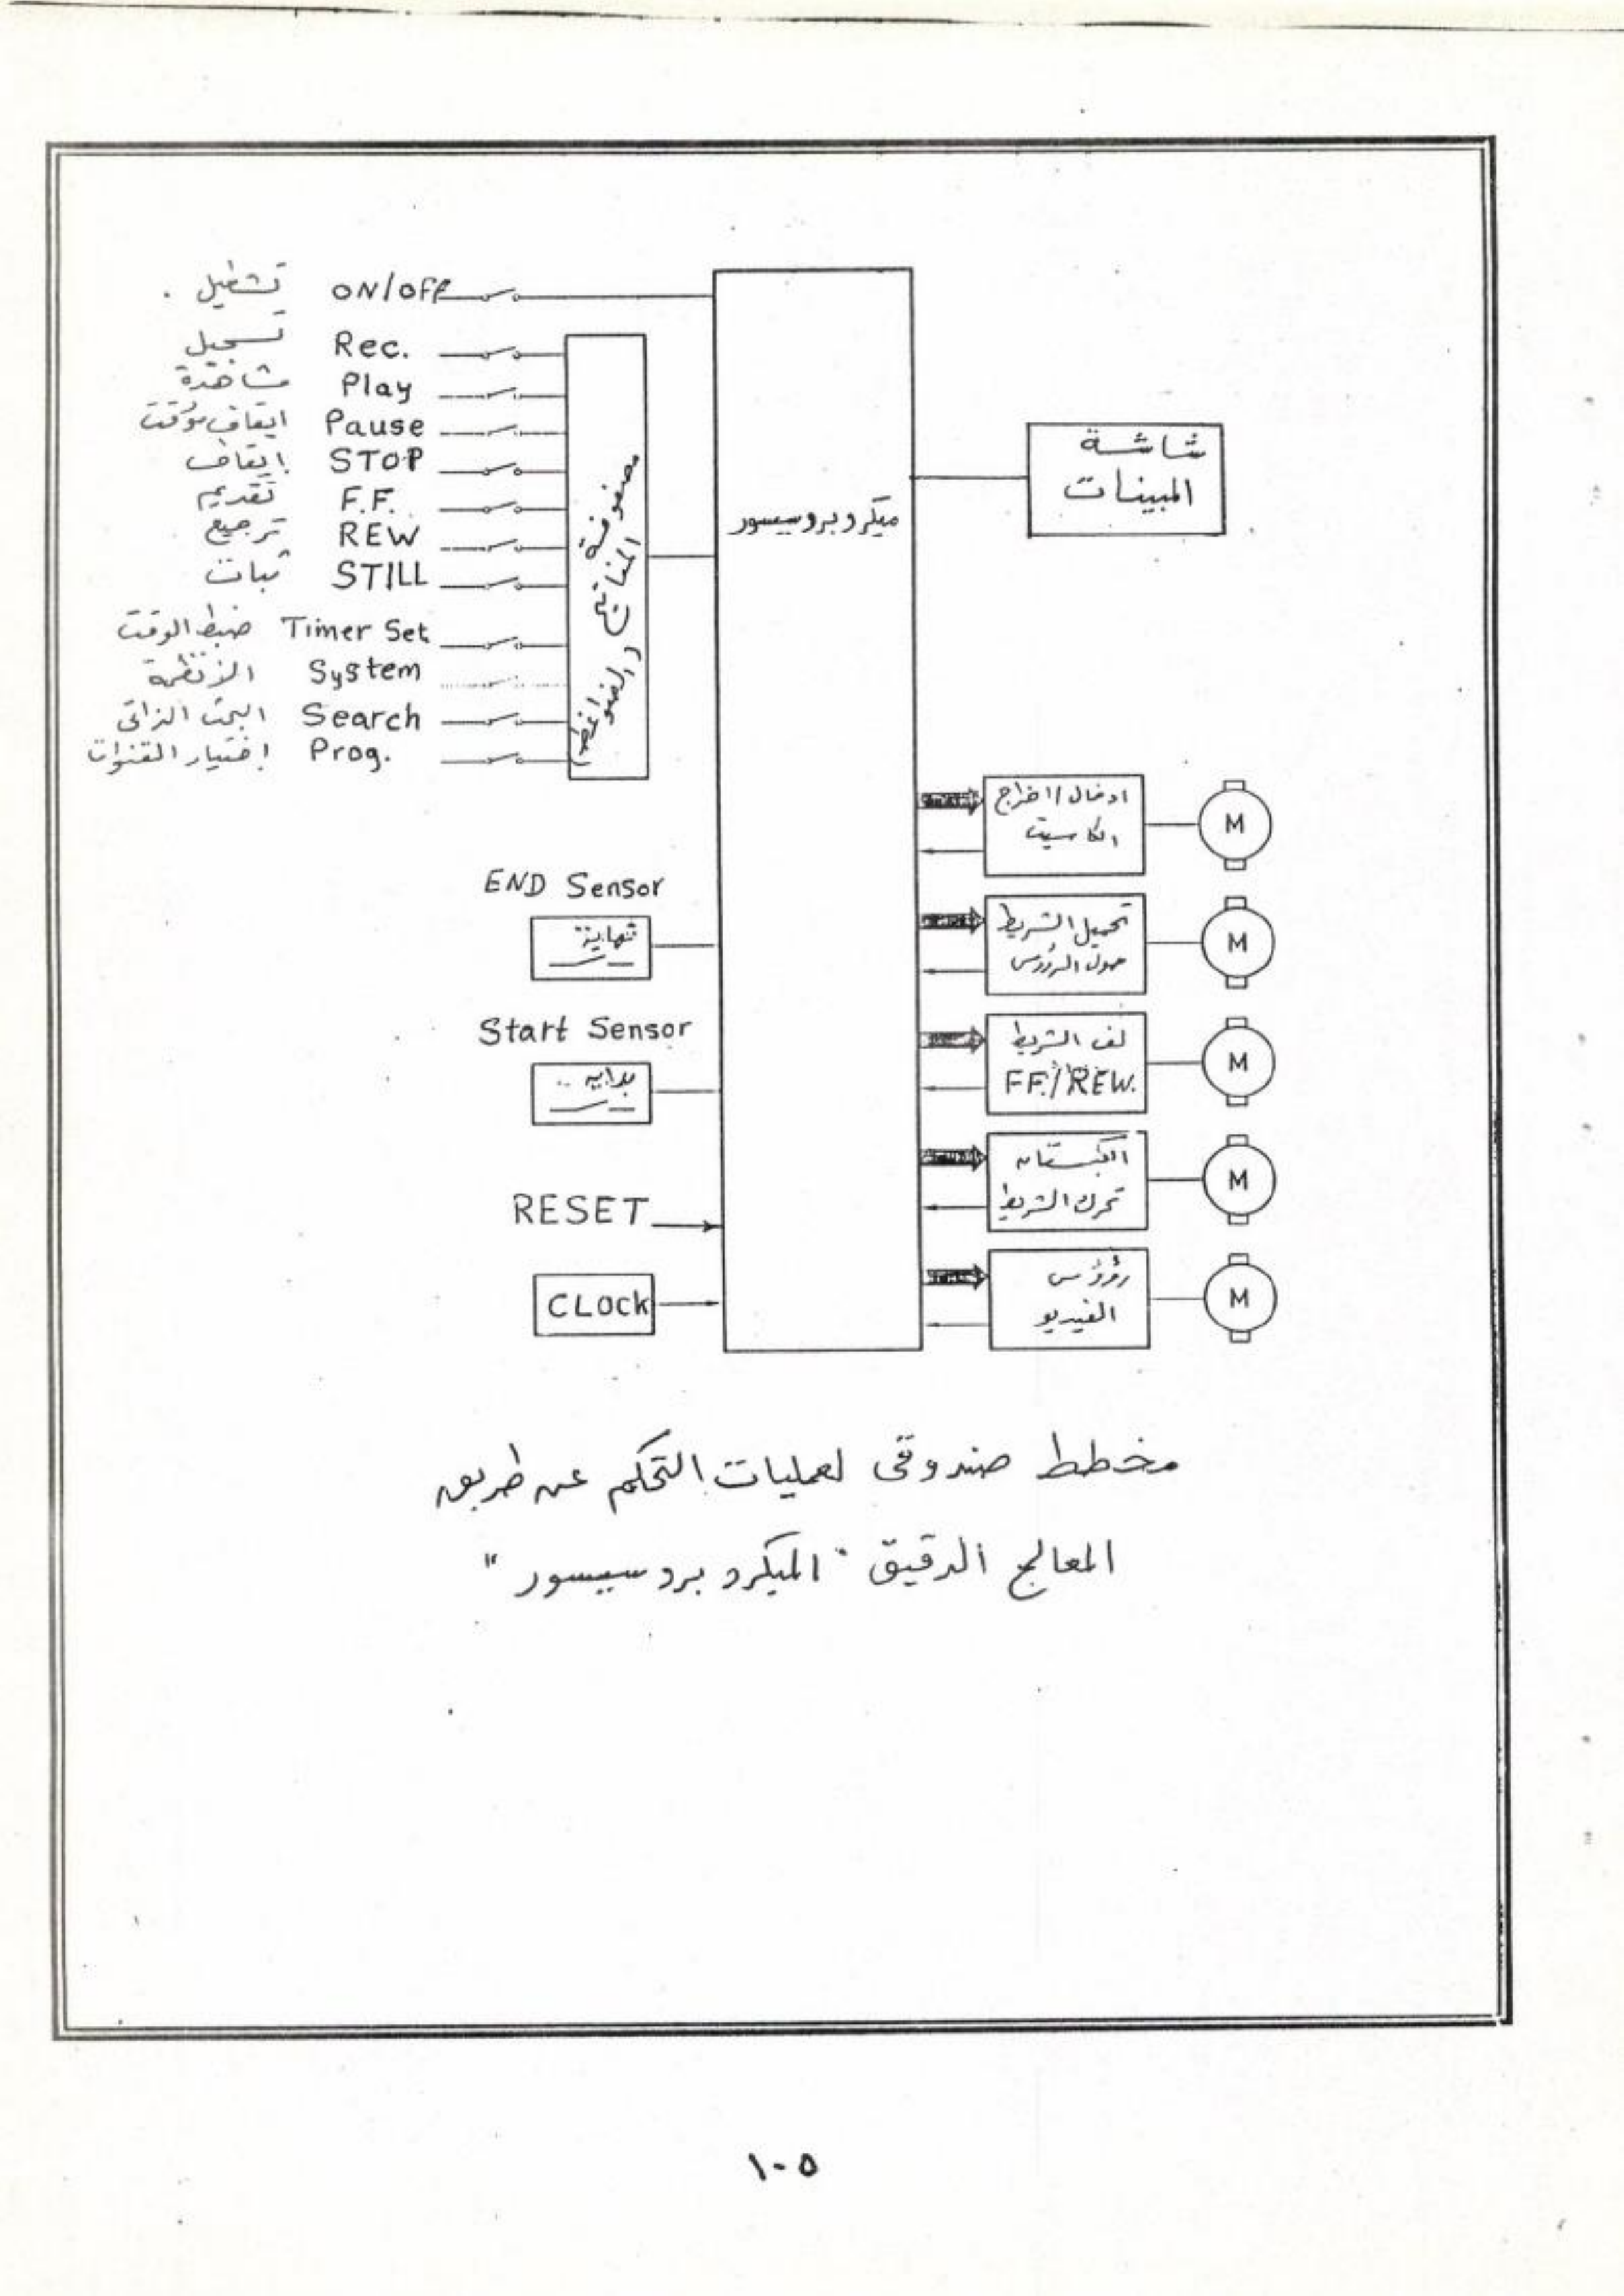 تشغيل ON/OFF
تسجيل Rec.
مشاهدة Play
ايقاف مؤقت Pause
ايقاف STOP
تقديم F.F.
ترجيع REW
ثبات STILL
ضبط الوقت Timer Set
الأنظمة System
البحث الذاتى Search
إختيار القنوات Prog.
مصفوفة
المفاتيح والضواغط
ميكروبروسيسور
شاشة
المبينات
END Sensor
نهاية
Start Sensor
بداية
RESET
CLock
ادخال / اخراج
الكاسيت
M
تحميل الشريط
حول الرؤوس
M
لف الشريط
F.F./REW.
M
الكبستان
تحرك الشريط
M
رؤوس
الفيديو
M
مخطط صندوقى لعمليات التحكم عن طريق
المعالج الدقيق "الميكروبروسيسور"
١٠٥